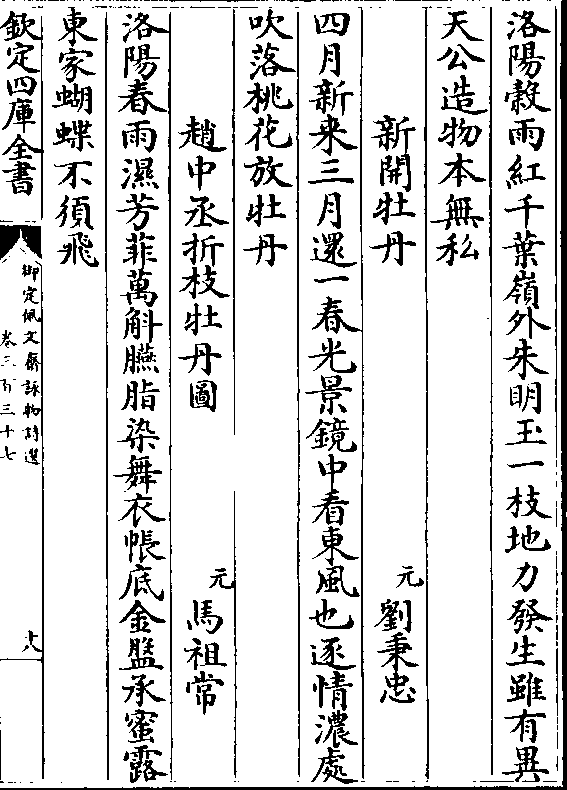 洛陽穀雨紅千葉嶺外朱明玉一枝地力發生雖有異
天公造物本無私
新開牡丹 元 劉秉忠
四月新来三月還一春光景鏡中看東風也逐情濃處
吹落桃花放牡丹
趙中丞折枝牡丹圖 元 馬祖常
洛陽春雨濕芳菲萬斛臙脂染舞衣帳底金盤承蜜露
東家蝴蝶不須飛
欽定四庫全書
御定佩文齋詠物詩選
卷三百三十七
十八